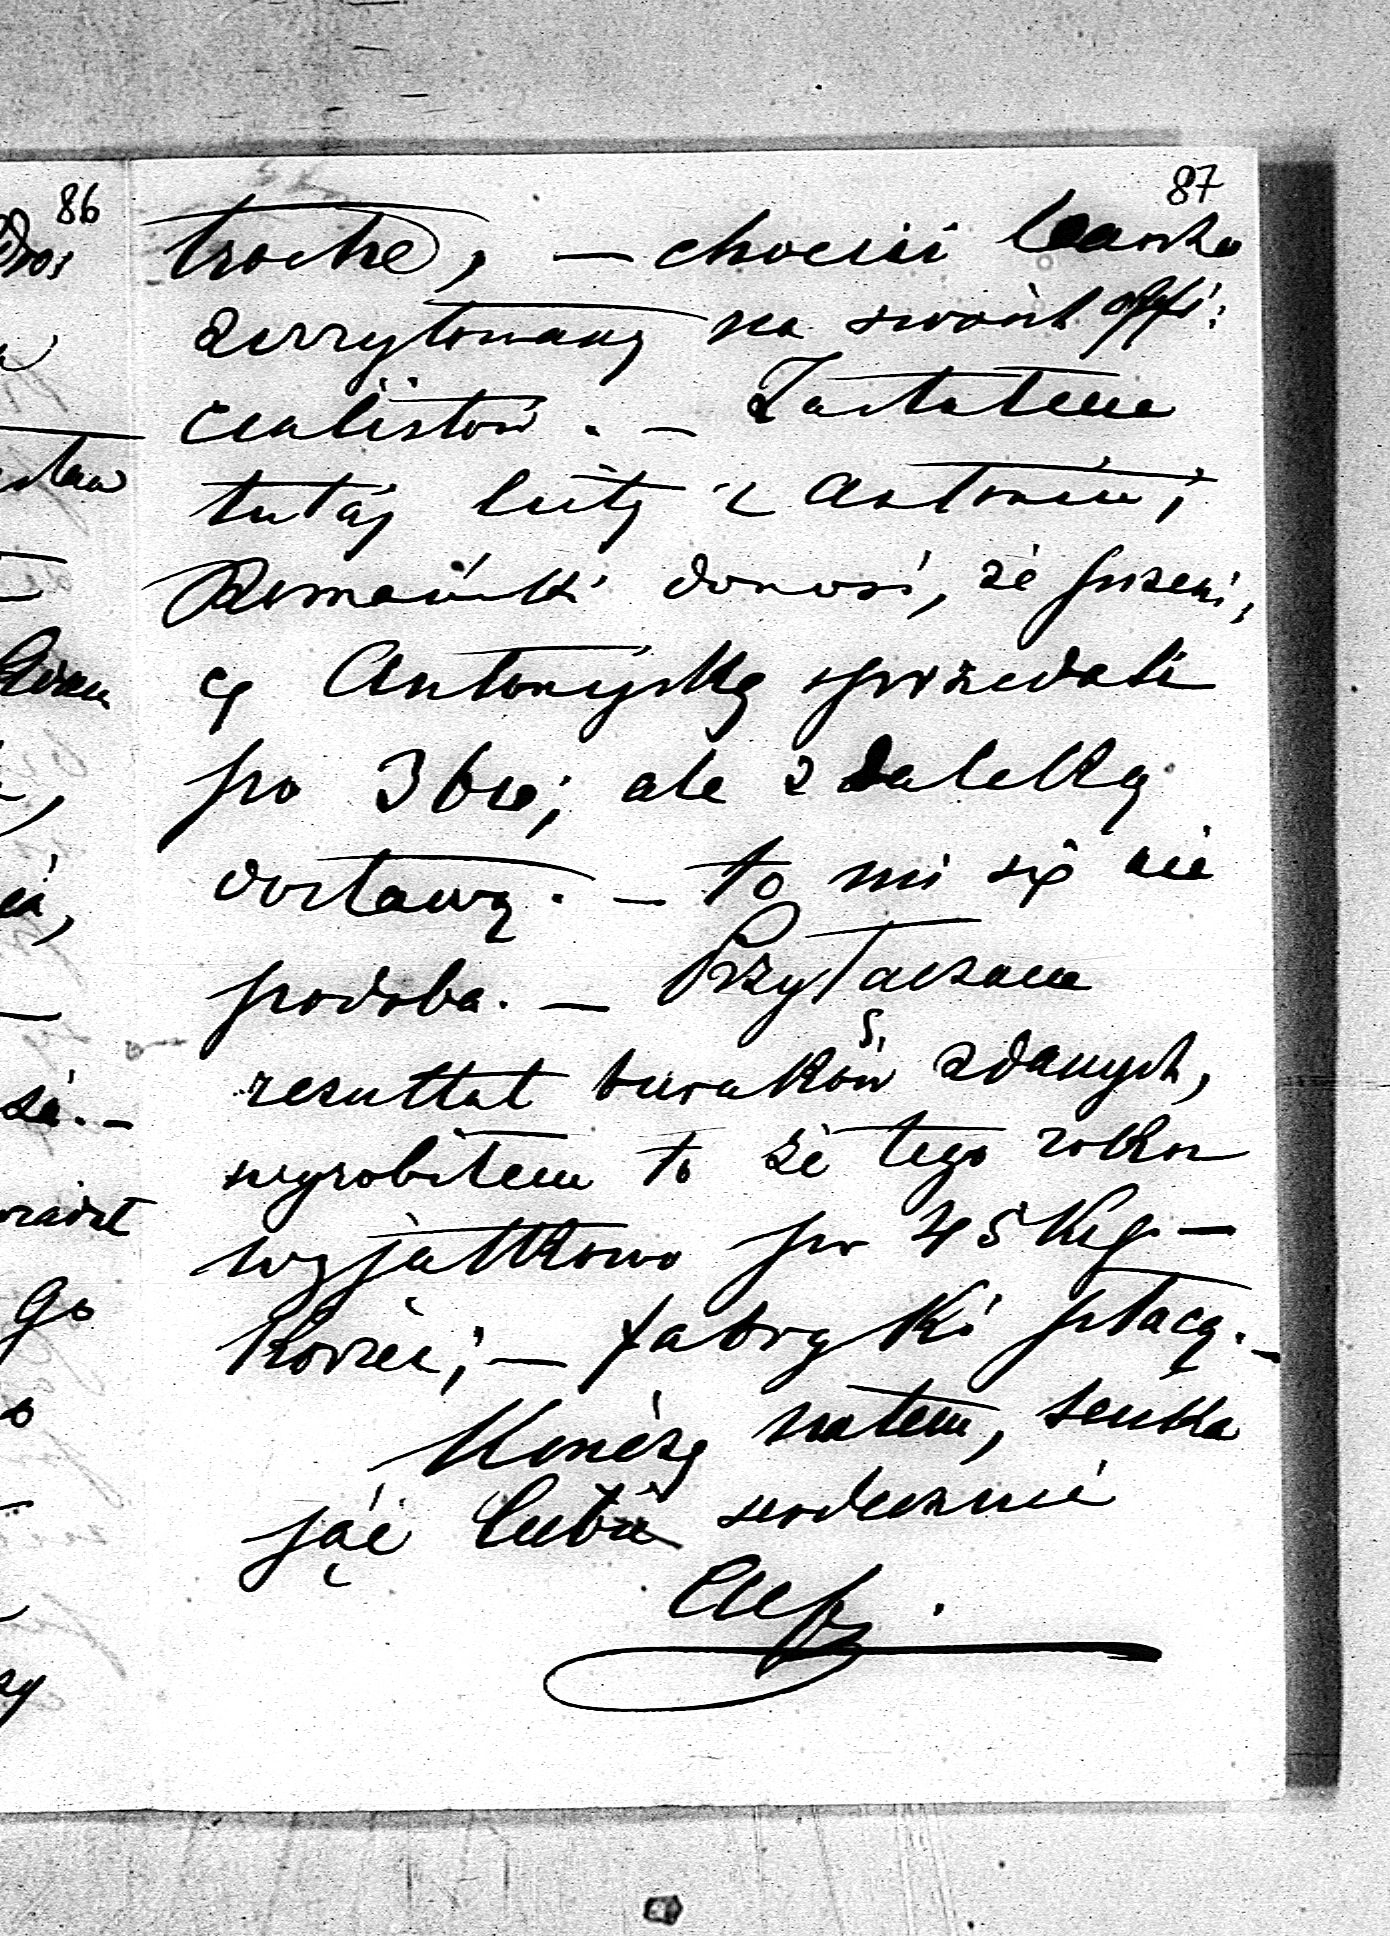 87
trochę, — chociaż bardzo
zirrytowany na swoich offi-
cialistów. — Zastałem
tutaj listy z Antonin;
Romański donosi, że pszeni-
cę Antonińską sprzedali
po 3 ale z daleką
dostawą. — to mi się nie
podoba. — Przyłaczam
resultat buraków zdanych,
wyrobiłem to że tego roku
wyjątkowo po 45 Kg —
Korzec; — fabryki płacą. —
Kończę zatem, sciska
jąc Ciebie serdecznie
86
są. —
go